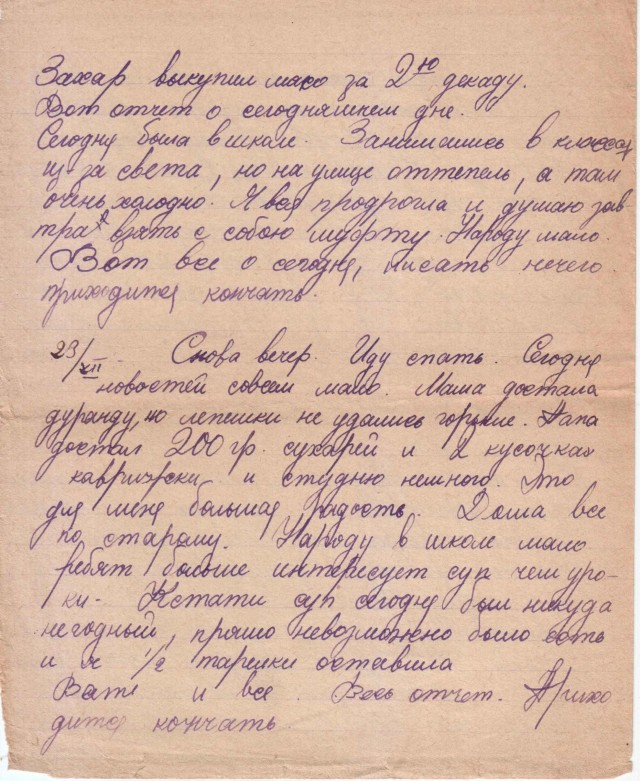 Захар выкупил мясо за 2ю декаду.
Вот отчет о сегодняшнем дне.
Сегодня была в школе. Занимались в классах
из-за света, но на улице оттепель, а там
очень холодно. Я вся продрогла и думаю зав
тра взять с собою муфту. Народу мало.
Вот все о сегодня, писать нечего
приходится кончать.
23/XII Снова вечер. Иду спать. Сегодня
новостей совсем мало. Мама достала
дуранду, но лепешки не удались горькие. Папа
достал 200 гр. сухарей и 2 кусочка
коврижки и студню немного. Это
для меня большая радость. Дома все
по старому. Народу в школе мало
ребят больше интересует суп чем уро-
ки. Кстати суп сегодня был никуда
негодный, прямо невозможно было есть
и я 1/2 тарелки оставила
Вот и все. Весь отчет. Прихо
дится кончать.